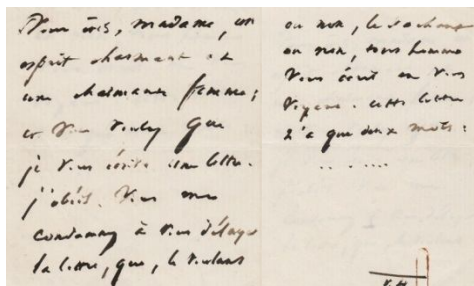 Vous êtes, madame, un
esprit charmant et
une charmante femme ;
et vous voulez que
je vous écrive une lettre.
j'obéis. Vous me
condamnez à vous délayer
la lettre, que, le voulant
ou non, le sachant
ou non, tout homme
vous écrit en vous
voyant. cette lettre
n'a que deux mots :
.. . ....
V. H.